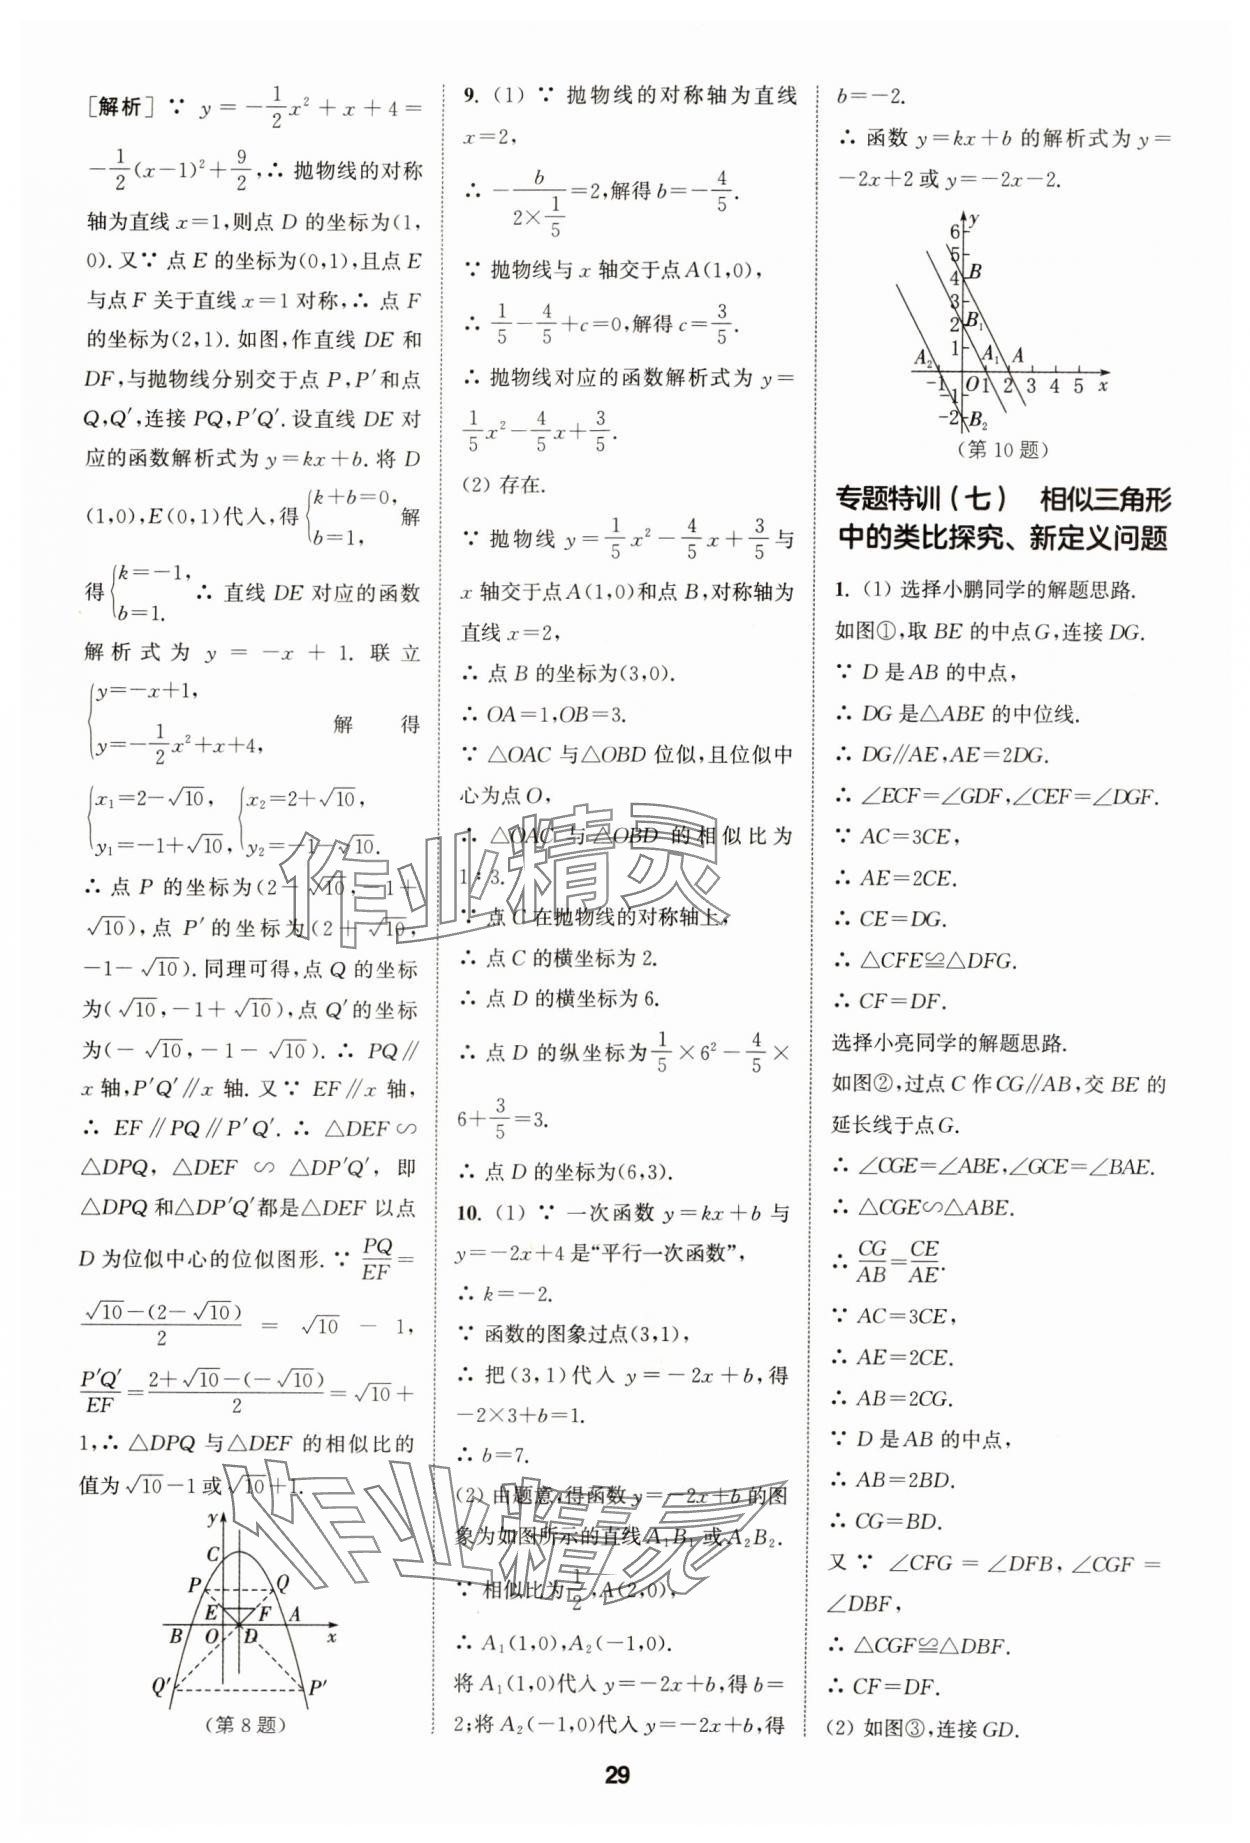 [解析] ∵ y=-1/2x²+x+4=
-1/2(x-1)²+9/2,∴ 抛物线的对称
轴为直线 x=1,则点 D 的坐标为(1,
0).又∵ 点 E 的坐标为(0,1),且点 E
与点 F 关于直线 x=1 对称,∴ 点 F
的坐标为(2,1).如图,作直线 DE 和
DF,与抛物线分别交于点 P,P′和点
Q,Q′,连接 PQ,P′Q′.设直线 DE 对
应的函数解析式为 y=kx+b.将 D
(1,0),E(0,1)代入,得{k+b=0, b=1, 解
得{k=-1, b=1. ∴ 直线 DE 对应的函数
解析式为 y=-x+1.联立
{y=-x+1, y=-1/2x²+x+4, 解得
{x₁=2-√10, y₁=-1+√10, {x₂=2+√10, y₂=-1-√10.
∴ 点 P 的坐标为(2-√10,-1+
√10),点 P′的坐标为(2+√10,
-1-√10).同理可得,点 Q 的坐标
为(√10,-1+√10),点 Q′的坐标
为(-√10,-1-√10).∴ PQ∥
x 轴,P′Q′∥x 轴.又∵ EF∥x 轴,
∴ EF∥PQ∥P′Q′.∴ △DEF∽
△DPQ,△DEF∽△DP′Q′,即
△DPQ 和△DP′Q′都是△DEF 以点
D 为位似中心的位似图形.∵ PQ/EF=
(√10-(2-√10))/2=√10-1,
P′Q′/EF=(2+√10-(-√10))/2=√10+
1,∴ △DPQ 与△DEF 的相似比的
值为√10-1或√10+1.
y
C
P Q
E F A
B O D x
Q′ P′
(第 8 题)
9. (1) ∵ 抛物线的对称轴为直线
x=2,
∴ -b/(2×1/5)=2,解得 b=-4/5.
∵ 抛物线与 x 轴交于点 A(1,0),
∴ 1/5-4/5+c=0,解得 c=3/5.
∴ 抛物线对应的函数解析式为 y=
1/5x²-4/5x+3/5.
(2) 存在.
∵ 抛物线 y=1/5x²-4/5x+3/5与
x 轴交于点 A(1,0)和点 B,对称轴为
直线 x=2,
∴ 点 B 的坐标为(3,0).
∴ OA=1,OB=3.
∵ △OAC 与△OBD 位似,且位似中
心为点 O,
∴ △OAC 与△OBD 的相似比为
1∶3.
∵ 点 C 在抛物线的对称轴上,
∴ 点 C 的横坐标为 2.
∴ 点 D 的横坐标为 6.
∴ 点 D 的纵坐标为1/5×6²-4/5×
6+3/5=3.
∴ 点 D 的坐标为(6,3).
10. (1) ∵ 一次函数 y=kx+b 与
y=-2x+4 是“平行一次函数”,
∴ k=-2.
∵ 函数的图象过点(3,1),
∴ 把(3,1)代入 y=-2x+b,得
-2×3+b=1.
∴ b=7.
(2) 由题意,得函数 y=-2x+b 的图
象为如图所示的直线 A₁B₁ 或 A₂B₂.
∵ 相似比为1/2,A(2,0),
∴ A₁(1,0),A₂(-1,0).
将 A₁(1,0)代入 y=-2x+b,得 b=
2;将 A₂(-1,0)代入 y=-2x+b,得
b=-2.
∴ 函数 y=kx+b 的解析式为 y=
-2x+2 或 y=-2x-2.
y
6
5
4 B
3
2 B₁
1
A₂ A₁ A
-1 O 1 2 3 4 5 x
-1
-2 B₂
(第 10 题)
专题特训(七) 相似三角形
中的类比探究、新定义问题
1. (1) 选择小鹏同学的解题思路.
如图①,取 BE 的中点 G,连接 DG.
∵ D 是 AB 的中点,
∴ DG 是△ABE 的中位线.
∴ DG∥AE,AE=2DG.
∴ ∠ECF=∠GDF,∠CEF=∠DGF.
∵ AC=3CE,
∴ AE=2CE.
∴ CE=DG.
∴ △CFE≌△DFG.
∴ CF=DF.
选择小亮同学的解题思路.
如图②,过点 C 作 CG∥AB,交 BE 的
延长线于点 G.
∴ ∠CGE=∠ABE,∠GCE=∠BAE.
∴ △CGE∽△ABE.
∴ CG/AB=CE/AE.
∵ AC=3CE,
∴ AE=2CE.
∴ AB=2CG.
∵ D 是 AB 的中点,
∴ AB=2BD.
∴ CG=BD.
又∵ ∠CFG=∠DFB,∠CGF=
∠DBF,
∴ △CGF≌△DBF.
∴ CF=DF.
(2) 如图③,连接 GD.
作业精灵
作业精灵
29